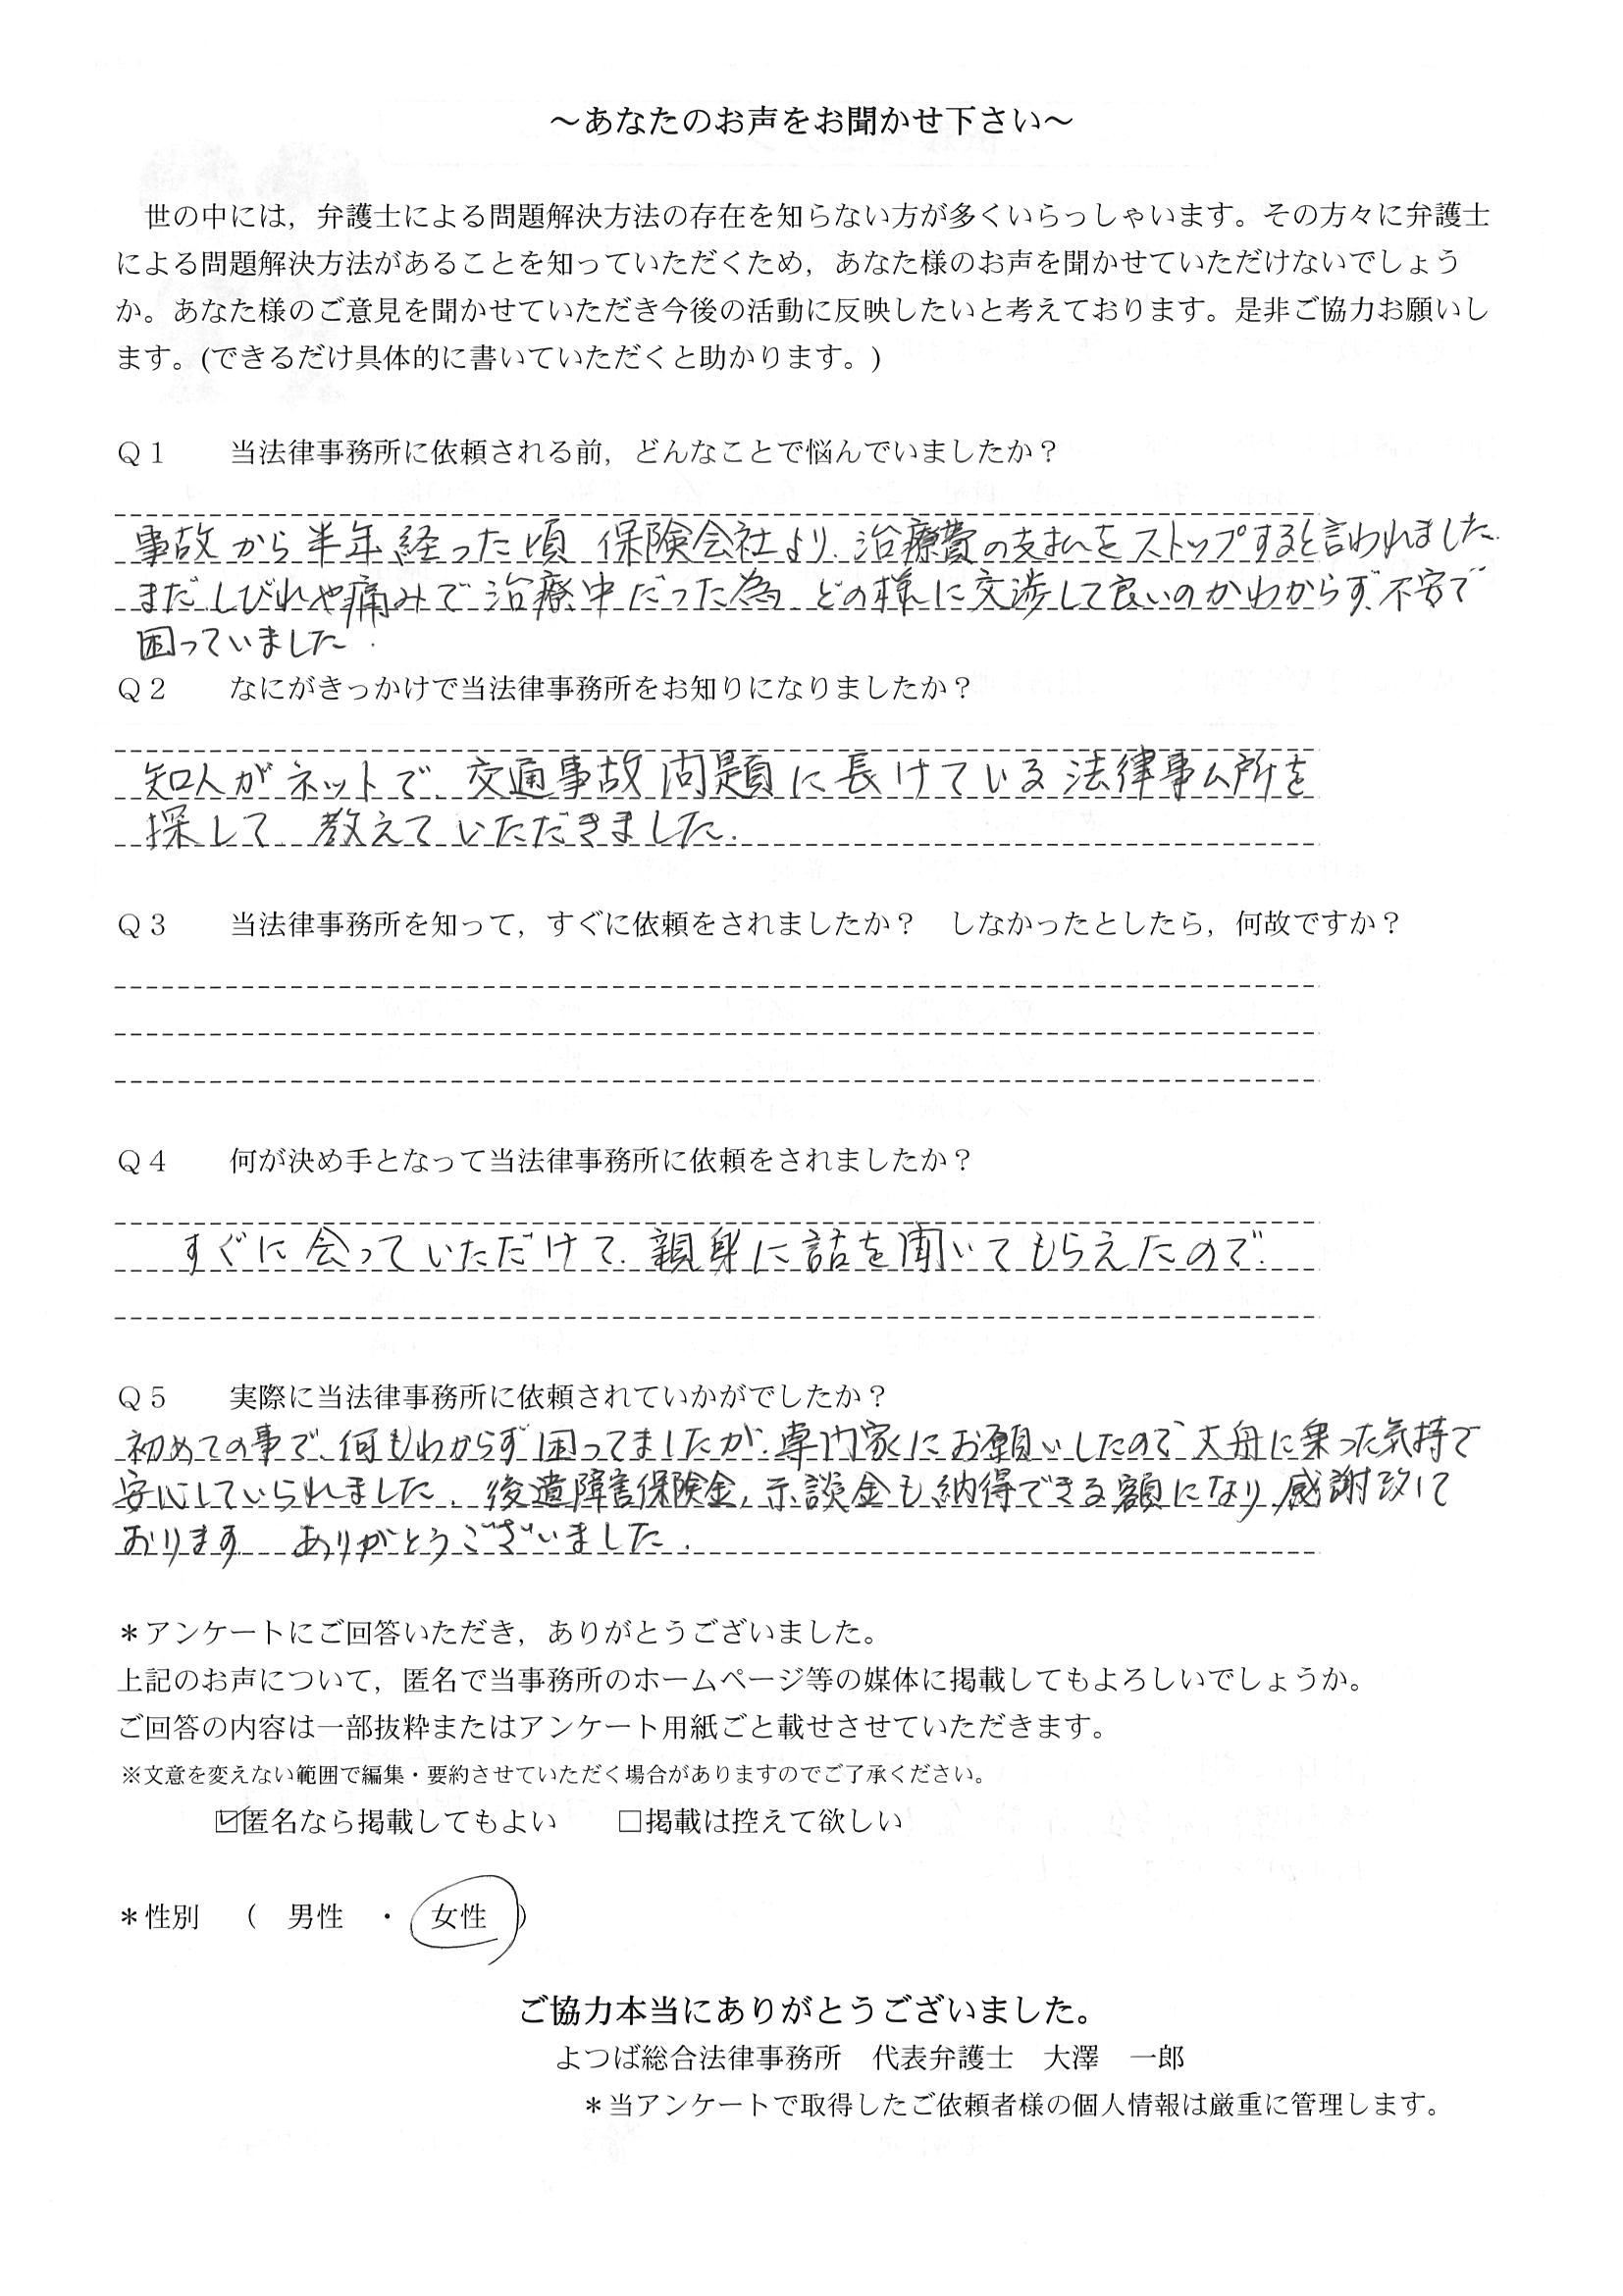 ～あなたのお声をお聞かせ下さい～
世の中には，弁護士による問題解決方法の存在を知らない方が多くいらっしゃいます。その方々に弁護士
による問題解決方法があることを知っていただくため，あなた様のお声を聞かせていただけないでしょう
か。あなた様のご意見を聞かせていただき今後の活動に反映したいと考えております。是非ご協力お願いし
ます。(できるだけ具体的に書いていただくと助かります。)
Ｑ１　　当法律事務所に依頼される前，どんなことで悩んでいましたか？
事故から半年経った頃 保険会社より、治療費の支払をストップすると言われました。
まだしびれや痛みで治療中だった為 どの様に交渉して良いのかわからず、不安で
困っていました.
Ｑ２　　なにがきっかけで当法律事務所をお知りになりましたか？
知人がネットで、交通事故問題に長けている法律事ム所を
探して 教えていただきました.
Ｑ３　　当法律事務所を知って，すぐに依頼をされましたか？　しなかったとしたら，何故ですか？
Ｑ４　　何が決め手となって当法律事務所に依頼をされましたか？
すぐに会っていただけて、親身に話を聞いてもらえたので.
Ｑ５　　実際に当法律事務所に依頼されていかがでしたか？
初めての事で、何もわからず困ってましたが、専門家にお願いしたので 大舟に乗った気持で
安心していられました、後遺障害保険金、示談金も納得できる額になり感謝致して
おります ありがとうございました.
＊アンケートにご回答いただき，ありがとうございました。
上記のお声について，匿名で当事務所のホームページ等の媒体に掲載してもよろしいでしょうか。
ご回答の内容は一部抜粋またはアンケート用紙ごと載せさせていただきます。
※文意を変えない範囲で編集・要約させていただく場合がありますのでご了承ください。
☑匿名なら掲載してもよい　　□掲載は控えて欲しい
＊性別　（　男性　・　女性　）
ご協力本当にありがとうございました。
よつば総合法律事務所　代表弁護士　大澤　一郎
＊当アンケートで取得したご依頼者様の個人情報は厳重に管理します。